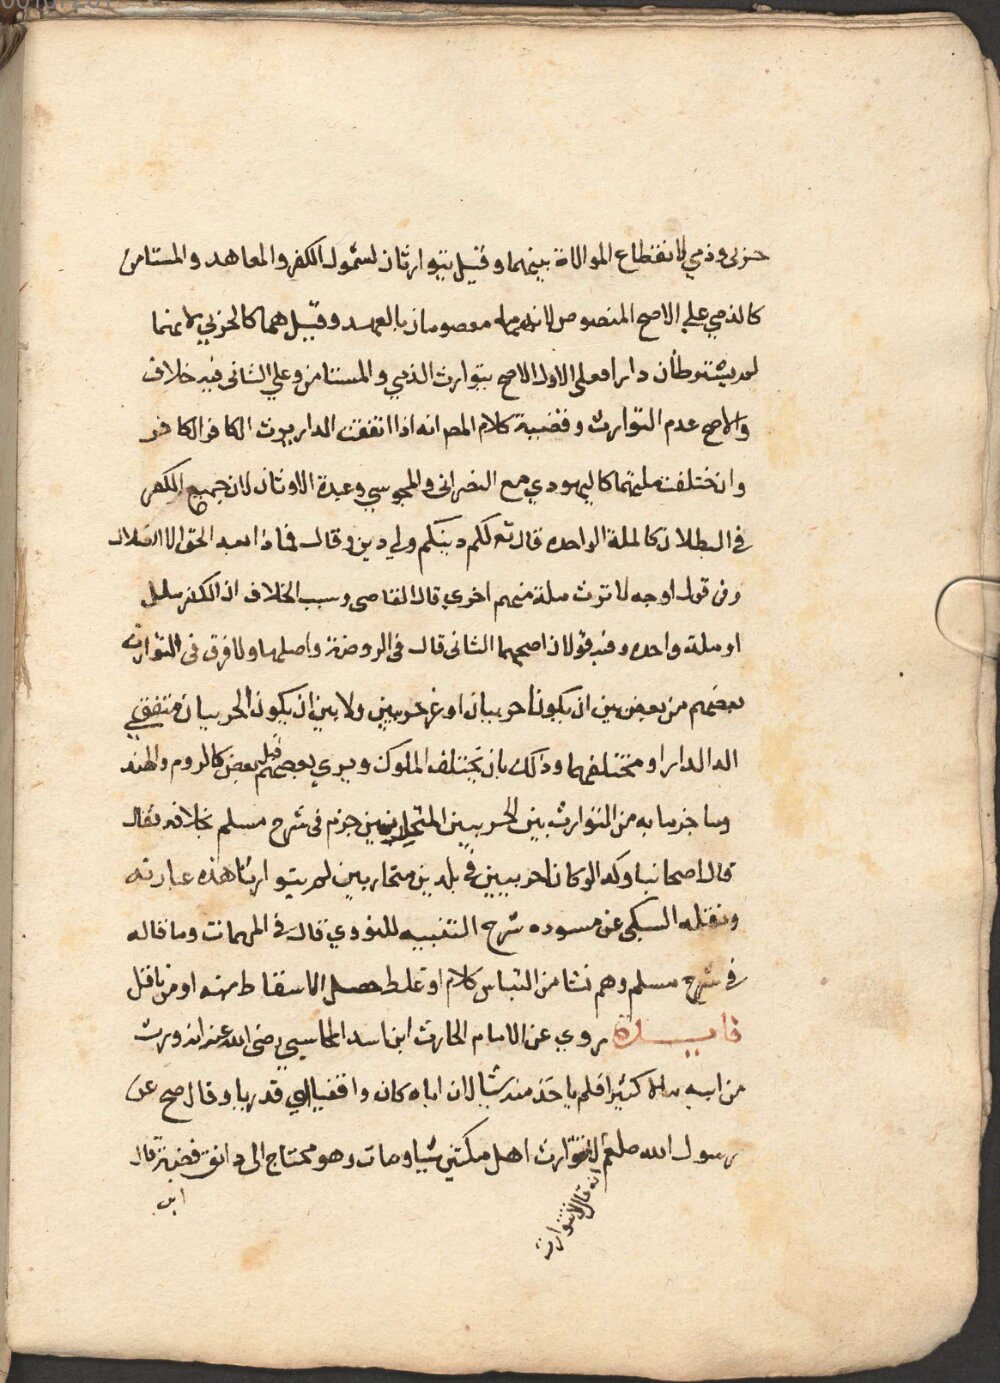 حربي وذمي لانقطاع الموالاة بينهما وقيل يتوارثان لشمول الكفر والمعاهد والمستامن
كالذمي على الاصح المنصوص لانهما معصومان بالعهد وقيل هما كالحربي لانهما
لم يستوطنان دارا فعلى الاول الاصح يتوارث الذمي والمستامن وعلى الثاني فيه خلاف
والاصح عدم التوارث وقضية كلام المص انه اذا اتفقت الدار يورث الكافر الكافر
وان ختلفت ملتهما كاليهودي مع النصراني والمجوسي وعبدة الاوثان لان جميع الكفر
في البطلان كالملة الواحده قال تع لكم دينكم ولي دين وقال فماذا بعد الحق الا الضلال
وفي قول او وجه لا ترث ملة منهم اخرى قال القاضي وسبب الخلاف ان الكفر ملل
او ملة واحده وفيه قولان اصحهما الثاني قال في الروضة واصلها ولا فرق في التوارث
بعضهم من بعض بين ان يكونا حربيان او غير حربيين ولا بين ان يكون الحربيان متفقي
الدالدار او مختلفهما وذلك بان يختلف الملوك ويرى بعضهم قتل بعض كالروم والهند
وما جزما به من التوارث بين الحربيين جزم في شرح مسلم بخلافه فقال
قال اصحابنا وكذا لو كانا حربيين في بلدين متحاربين لم يتوارثا هذه عبارته
ونقله السبكي عن مسوده شرح التنبيه للنووي قال في المهمات وما قاله
في شرح مسلم وهم نشا من التباس كلام او غلط حصل الاسقاط منه او من ناقل
فايـــدة روي عن الامام الحارث ابن اسد المحاسبي رضي الله عنه انه ورث
من ابيه مالا كثيرا فلم ياخذ منه شيا لان اباه كان واقفيا اي قدريا وقال صح عن
رسول الله صلعم انه قال لا يتوارث اهل ملتين شيا ومات وهو محتاج الى دانق فضة قال
ابن
انه قال لا يتوارث